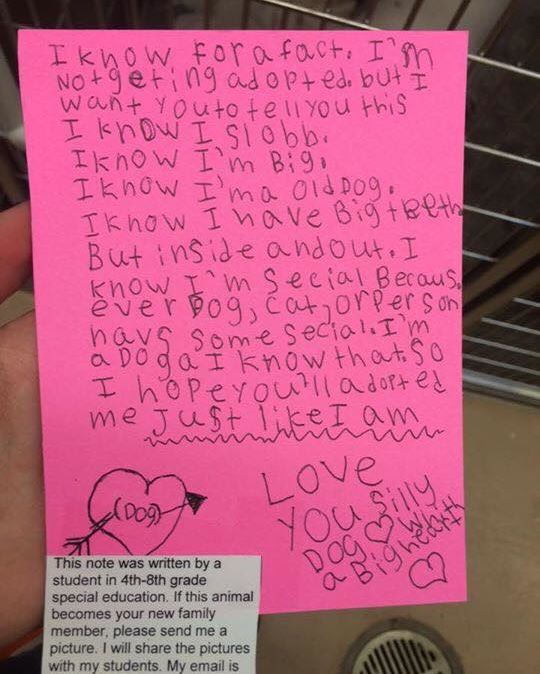 I know for a fact. I'm
Not geting adopted. but I
want you to tell you this
I know I slobb.
I know I'm Big.
I know I'm a old Dog.
I know I have Big teeth
But inside and out. I
know I'm Secial Becaus.
ever Dog, cat, or Person
havs some Secial. I'm
a Dog a I know that. So
I hope you'll adopted
me Just like I am
Love
you Silly
Dog with
a Big hearth
(Dog)
This note was written by a
student in 4th-8th grade
special education. If this animal
becomes your new family
member, please send me a
picture. I will share the pictures
with my students. My email is